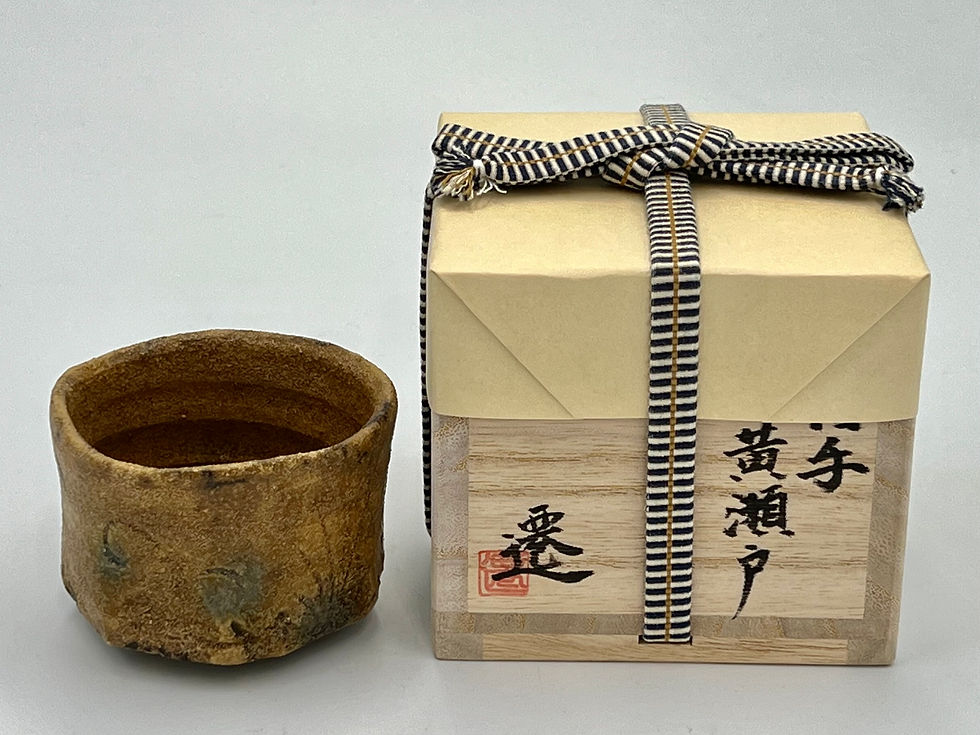 手
黄瀬戸
遷